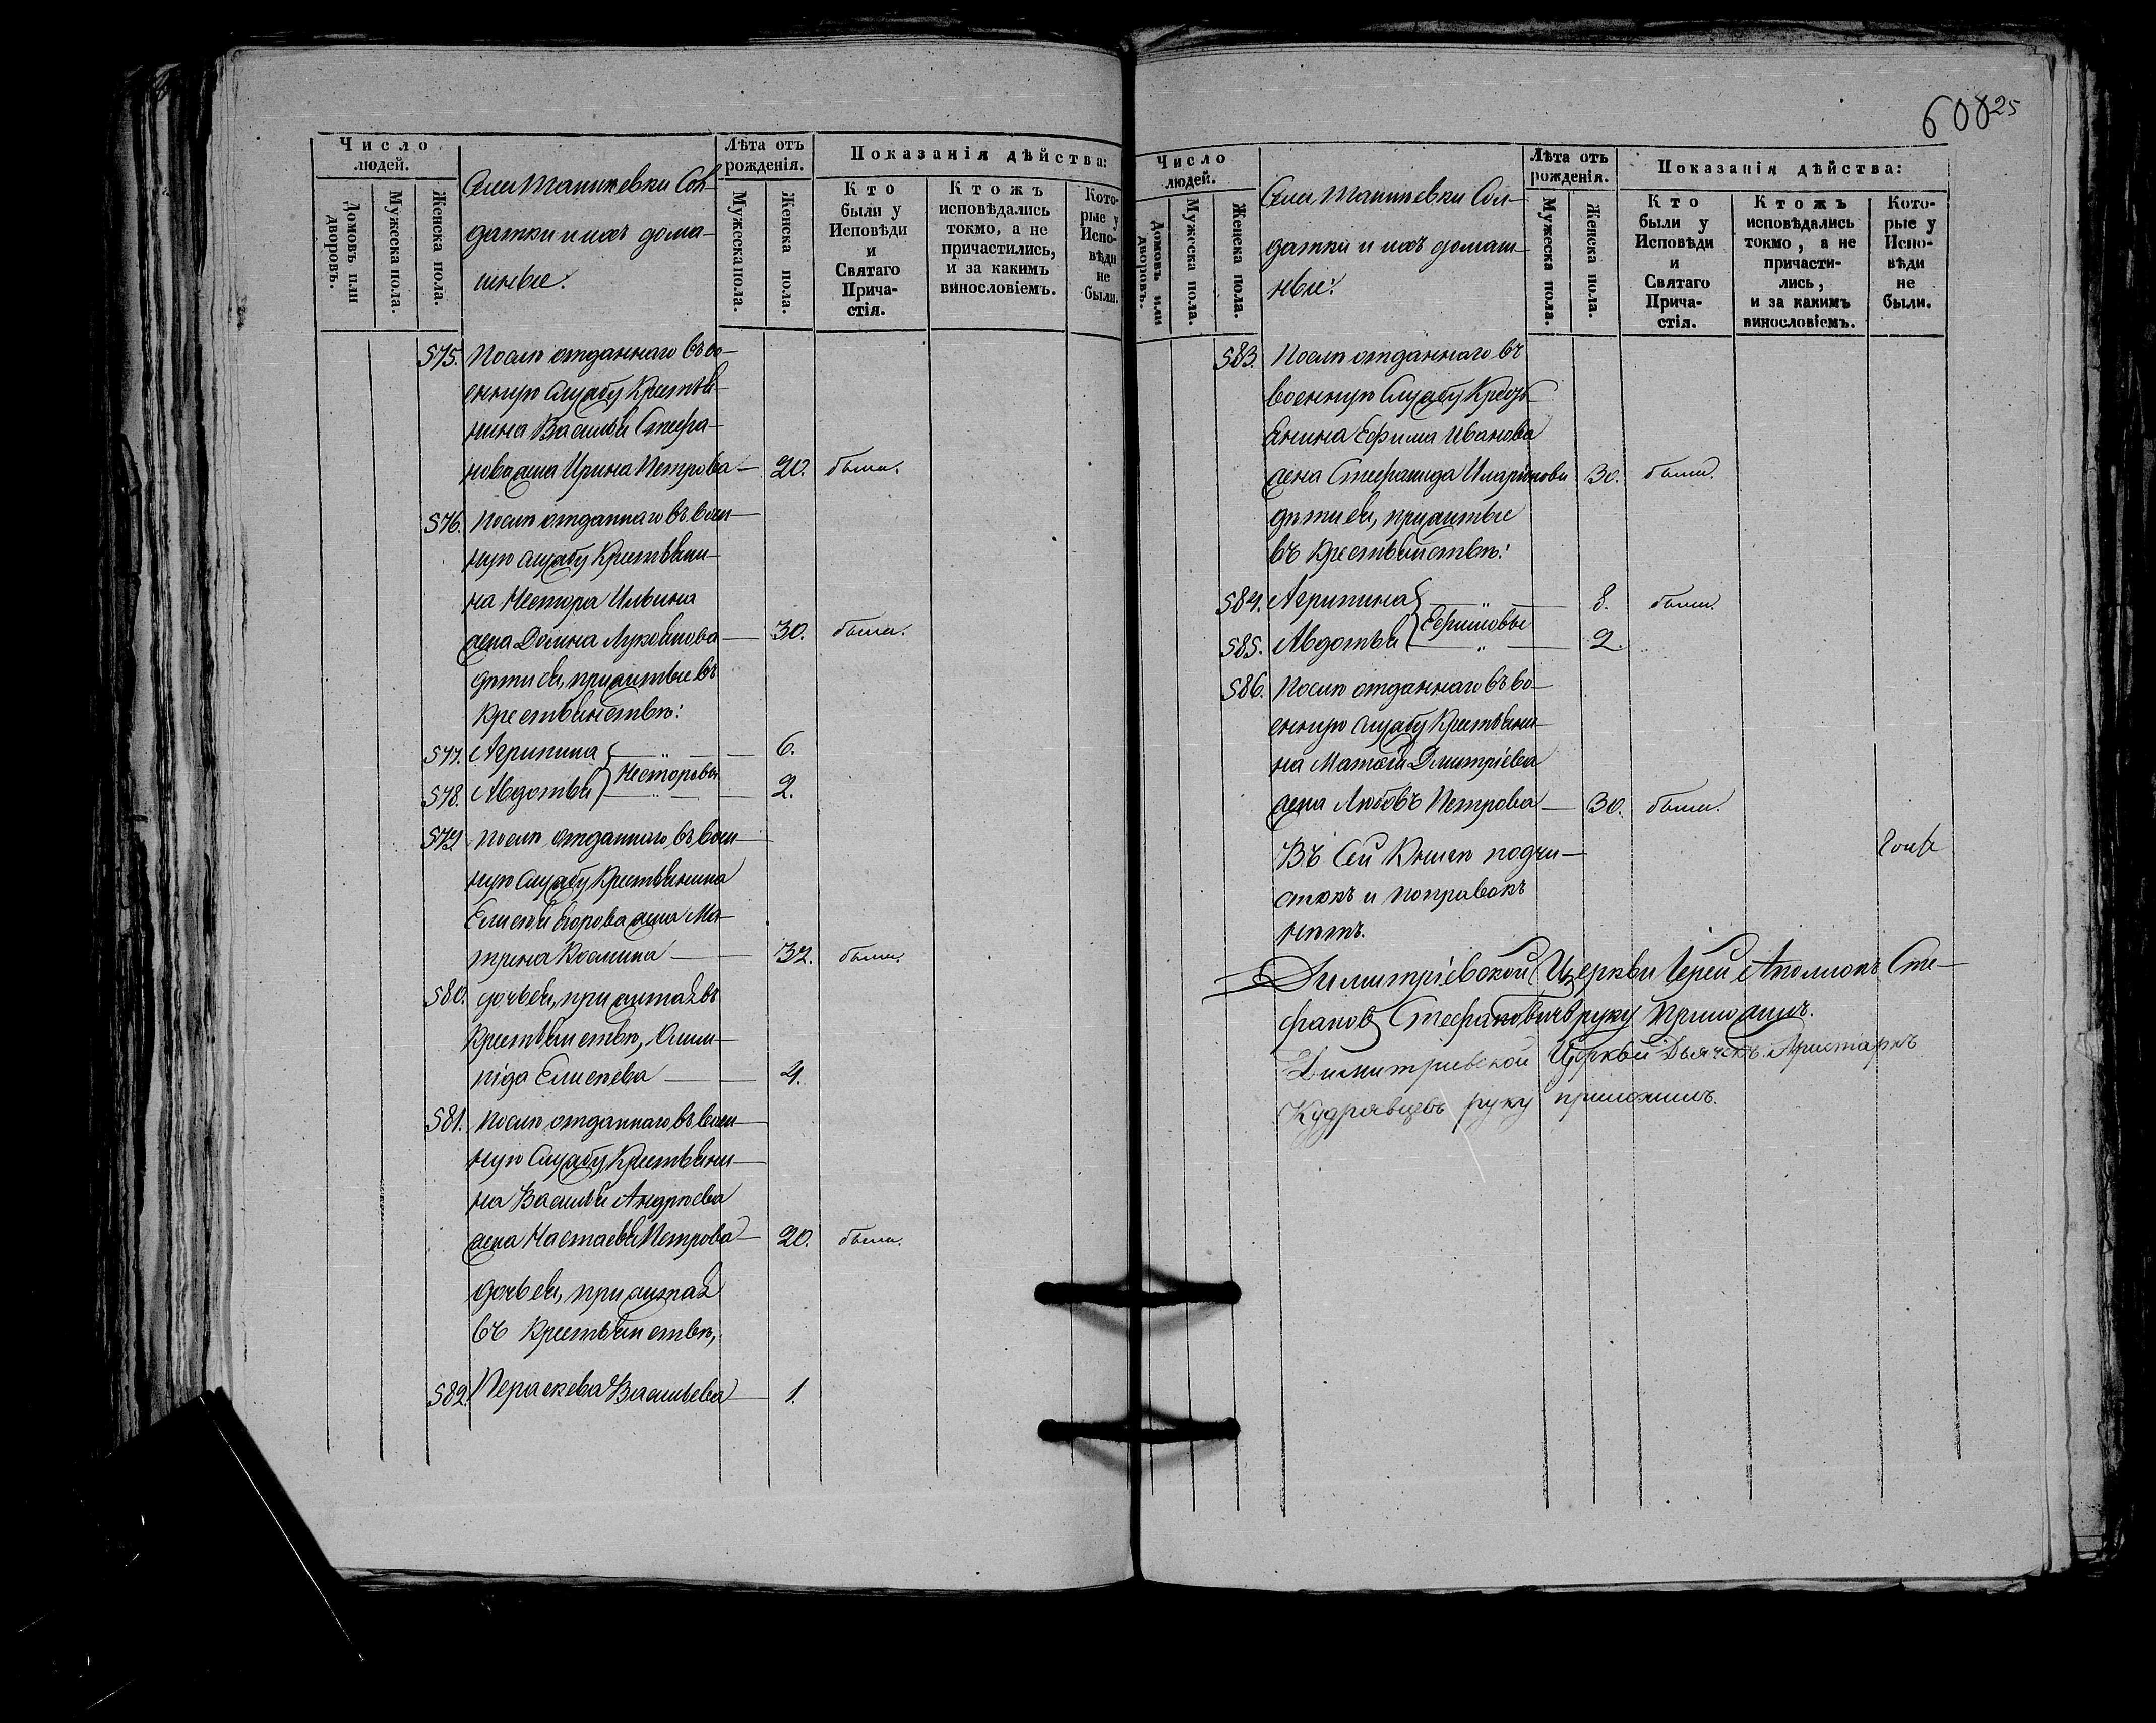 600 25
Число людей.
Домовъ или дворовъ.
Мужеска пола.
Женска пола.
Села Танѣевки Сол-
датки и ихъ дома-
шнѣе:
Лѣта отъ рожденія.
Мужеска пола.
Женска пола.
Показанія дѣйства:
Кто были у Исповѣди и Святаго Причастія.
Ктожъ исповѣдались токмо, а не причастились, и за какимъ винословіемъ.
Которые у Исповѣди не были.
575. Послѣ отданнаго въ во-
енную службу Крестья-
нина Василья Стефа-
нова жена Ирина Петрова — 20. были.
576. Послѣ отданнаго въ воен-
ную службу Крестьяни-
на Нестора Ильина
жена Домна Лукоянова — 30. были.
дѣти ея, прижитые въ
Крестьянствѣ:
577. Агрипина — „ — 6.
Несторовы
578. Авдотья — „ — 2.
579. Послѣ отданнаго въ воен-
ную службу Крестьянина
Елисѣя Егорова жена Ма-
трена Козмина — 32. были.
580. дочь ея, прижитая въ
Крестьянствѣ, Олим-
піда Елисѣева — 4.
581. Послѣ отданнаго въ воен-
ную Службу Крестьяни-
на Василья Андрѣева
жена Настасья Петрова — 20. были.
дочь ея, прижитая
въ Крестьянствѣ,
582. Пераскева Васильева — 1.
Число людей.
Домовъ или дворовъ.
Мужеска пола.
Женска пола.
Села Танѣевки Сол-
датки и ихъ домаш-
нѣе:
Лѣта отъ рожденія.
Мужеска пола.
Женска пола.
Показанія дѣйства:
Кто были у Исповѣди и Святаго Причастія.
Ктожъ исповѣдались токмо, а не причастились, и за какимъ винословіемъ.
Которые у Исповѣди не были.
583. Послѣ отданнаго въ
военную Службу Кресть-
янина Ефима Иванова
жена Стефанида Иларіонова 30. были.
дѣти ея, прижитые
въ Крестьянствѣ:
584. Агрипина — „ — 8. были.
Ефимовы
585. Авдотья — „ — 2.
586. Послѣ отданнаго въ во-
енную службу Крестьяни-
на Матвѣя Дмитріева
жена Любовь Петрова — 30. были.
Въ Сей Книгѣ подчи-
стокъ и поправокъ
нѣтъ.
Димитріевской Церкви Іерей Аполлонъ Сте-
фановъ Стефановичъ руку приложилъ.
Димитріевской Церкви Дьячекъ Аристархъ
Кудрявцевъ руку приложилъ.